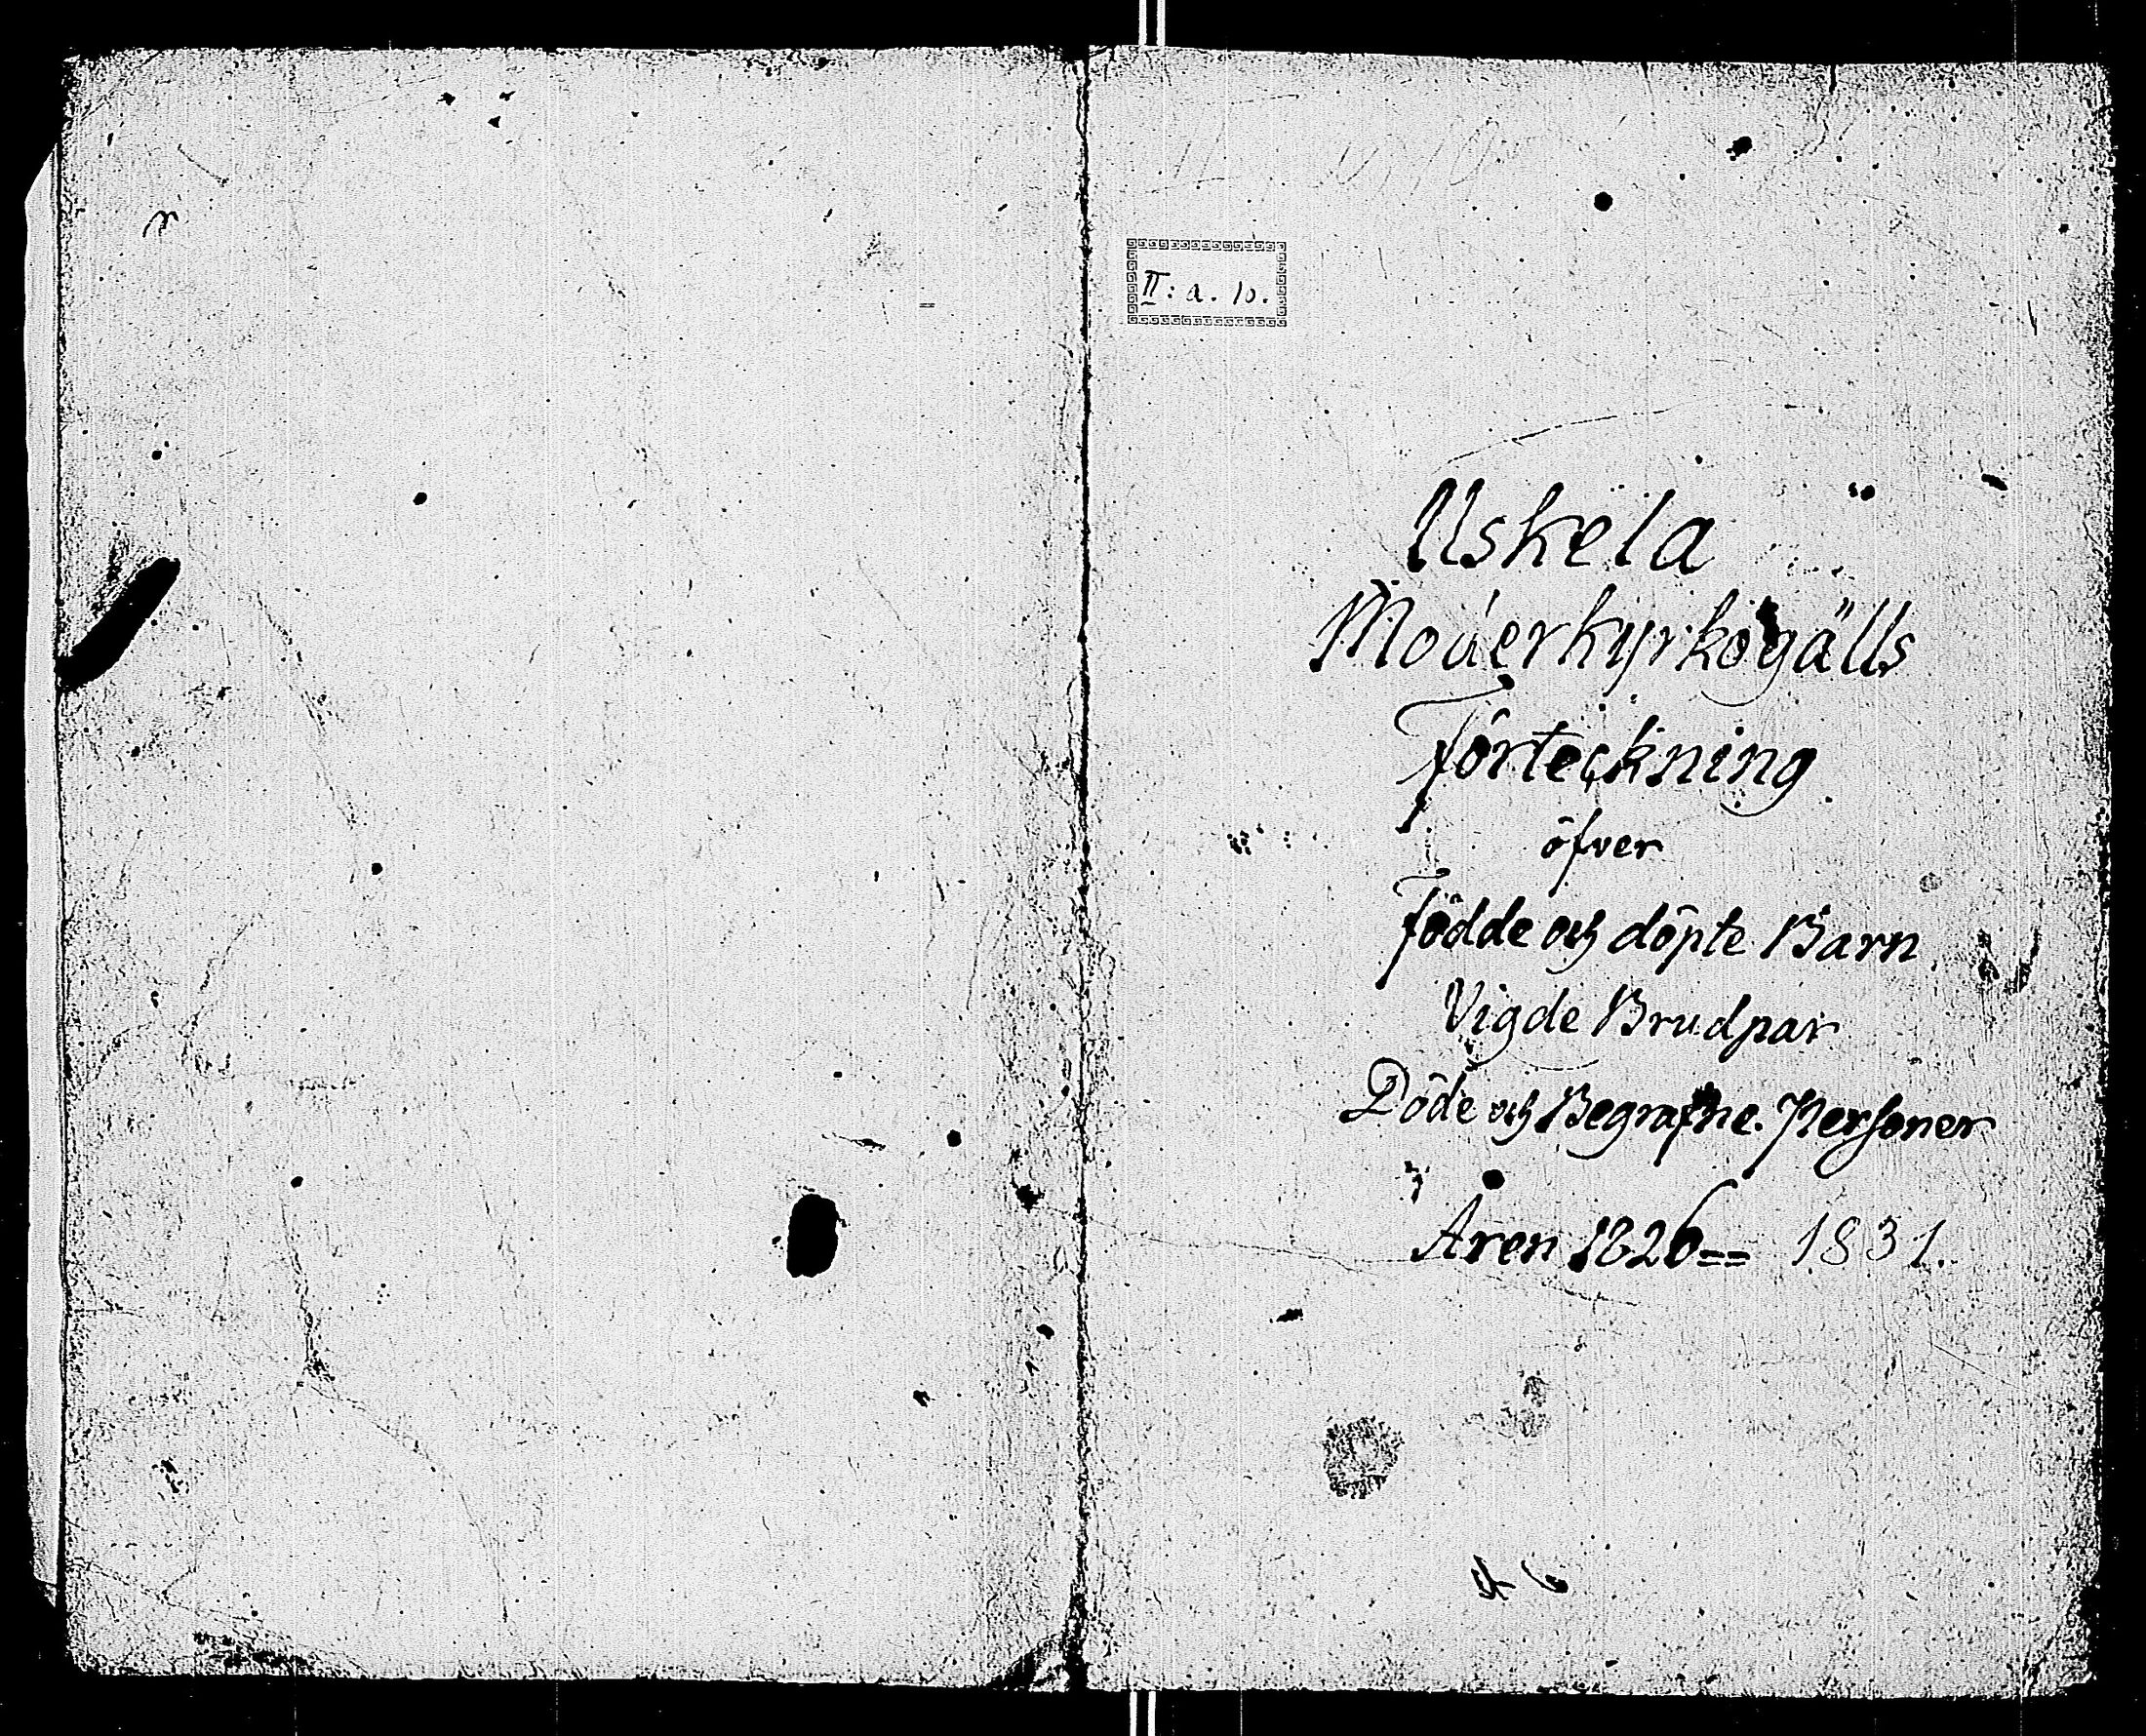 II: a. 10.
Uskela
Moderkyrkogälls
Förteckning
öfver
Födde och döpte Barn
Vigde Brudpar
Döde och Begrafne Personer
Åren 1826 == 1831.